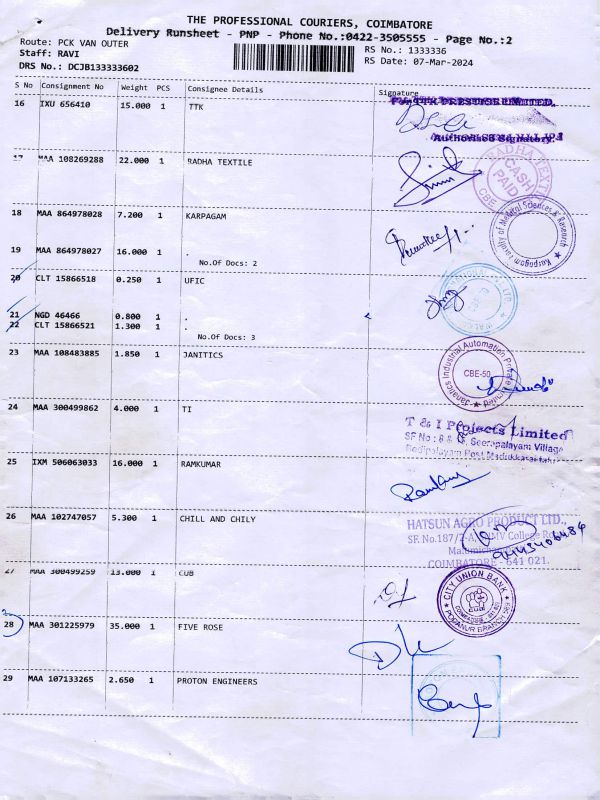 THE PROFESSIONAL COURIERS, COIMBATORE
Delivery Runsheet - PNP - Phone No.:0422-3505555 - Page No.:2
Route: PCK VAN OUTER
RS No.: 1333336
Staff: RAVI
RS Date: 07-Mar-2024
DRS No.: DCJB133333602
S No Consignment No Weight PCS Consignee Details Signature
16 IXU 656410 15.000 1 TTK
For TTK PRESTIGE LIMITED.
Authorised Signatory.
17 MAA 108269288 22.000 1 RADHA TEXTILE
CASH PAID
CBE
18 MAA 864978028 7.200 1 KARPAGAM
Karpagam Faculty of Medical Sciences & Research
19 MAA 864978027 16.000 1 .
No.Of Docs: 2
20 CLT 15866518 0.250 1 UFIC
21 NGD 46466 0.800 1 .
22 CLT 15866521 1.300 1 .
No.Of Docs: 3
23 MAA 108483885 1.850 1 JANITICS
Janatics Industrial Automation Private Limited
CBE-50
24 MAA 300499862 4.000 1 TI
T & I Projects Limited
SF No : 6 & Seerapalayam Village
Post
25 IXM 506063033 16.000 1 RAMKUMAR
26 MAA 102747057 5.300 1 CHILL AND CHILY
HATSUN AGRO PRODUCT LTD.
SF. No.187/2-A, College
9443406484
COIMBATORE - 641 021.
27 MAA 300499259 13.000 1 CUB
CITY UNION BANK
CUB
PODANUR BRANCH
28 MAA 301225979 35.000 1 FIVE ROSE
29 MAA 107133265 2.650 1 PROTON ENGINEERS